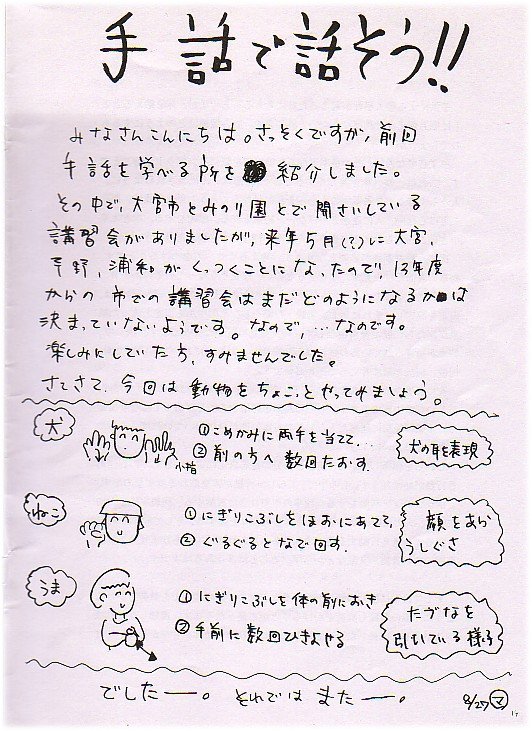 手話で話そう!!
みなさんこんにちは。さっそくですが、前回
手話を学べる所を 紹介しました。
その中で、大宮市とみのり園とで開さいしている
講習会がありましたが、来年5月(?)に大宮、
与野、浦和がくっつくことになったので、13年度
からの市での講習会はまだどのようになるかは
決まっていないようです。なので、…なのです。
楽しみにしていた方、すみませんでした。
さてさて、今回は動物をちょこっとやってみましょう。
犬
小指
①こめかみに両手を当てて…
②前の方へ数回たおす.
犬の耳を表現
ねこ
①にぎりこぶしをほおにあてて,
②ぐるぐるとなで回す.
顔をあらうしぐさ
うま
①にぎりこぶしを体の前におき
②手前に数回ひきよせる
たづなを
引いている様子
でしたー。それではまたー。
マ